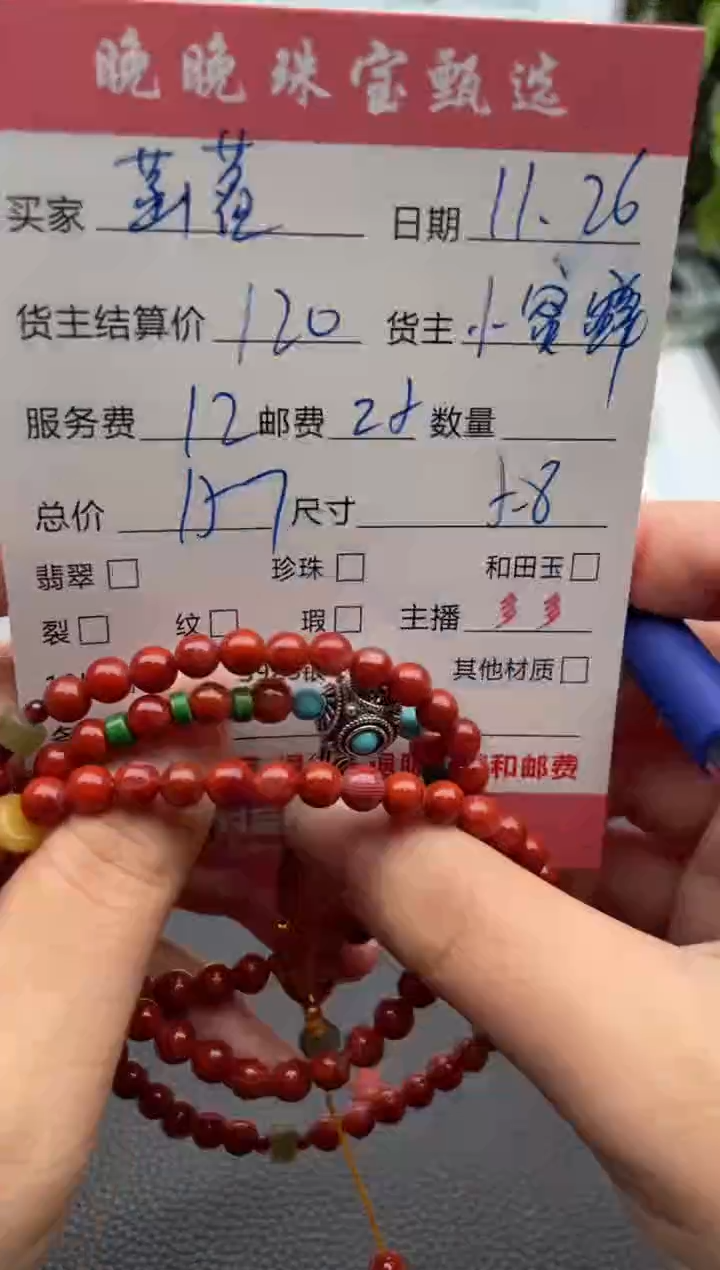 晚晚珠宝甄选
买家 日期 11.26
货主结算价 120 货主 小蜜蜂
服务费 12 邮费 25 数量
总价 157 尺寸 5-8
翡翠 珍珠 和田玉
裂 纹 瑕 主播 多多
其他材质
和邮费